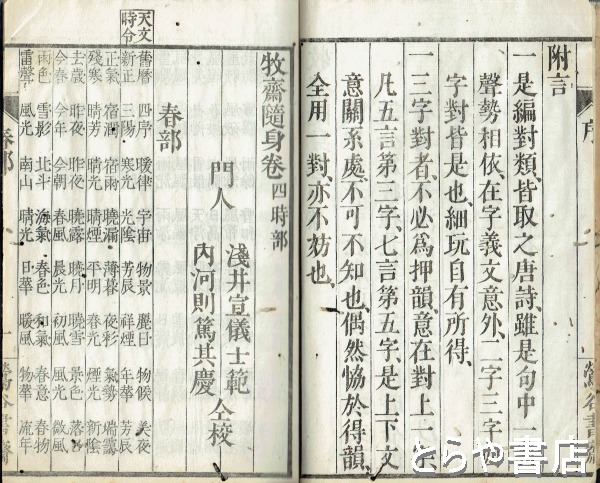 序
附言
一是編對類、皆取之唐詩、雖是句中一
聲勢相依、在字義文意外、二字三字四
字對皆是也、細玩自有所得、
一三字對者、不必爲押韻、意在對上一
凡五言第三字、七言第五字、是上下文
意關系處、不可不知也、偶然恊於得韻、
全用一對、亦不妨也、
牧齋隨身卷 四時部
門人 淺井宣儀士範
內河則篤其慶 仝校
春部
天文
時令
舊曆 四序 暖律 宇宙 物景 麗日 物候 美夜
新正 三陽 寒光 光陰 芳辰 祥煙 年華 芳辰
正氣 宿酒 宿雨 曉漏 薄暮 夜彩 氣勢
殘寒 晴芳 晴光 晴煙 平明 春光 煙光 新陰
去歲 昨夜 昨夜 曉露 曉月 曉雪 景色 落
今春 今年 今朝 春風 晨光 初風 風光 微風
雨色 雪影 北斗 氣 春色 和氣 春意 春物
雷聲 風光 南山 晴光 日華 暖風 物華 流年
春部
一
鶯谷書齋
鶯谷書齋
とらや書店